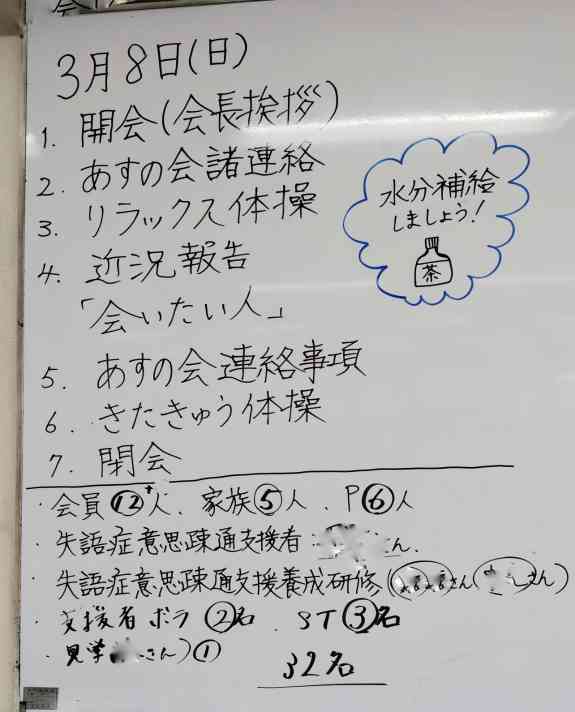 3月8日(日)
1. 開会(会長挨拶)
2. あすの会諸連絡
3. リラックス体操
4. 近況報告
「会いたい人」
5. あすの会連絡事項
6. きたきゅう体操
7. 閉会
水分補給
しましょう!
茶
・会員⑫人、家族⑤人、P⑥人
・失語症意思疎通支援者: ん.
・失語症意思疎通支援養成研修( さん( さん)
・支援者ボラ②名、ST③名
・見学 さん)①
32名